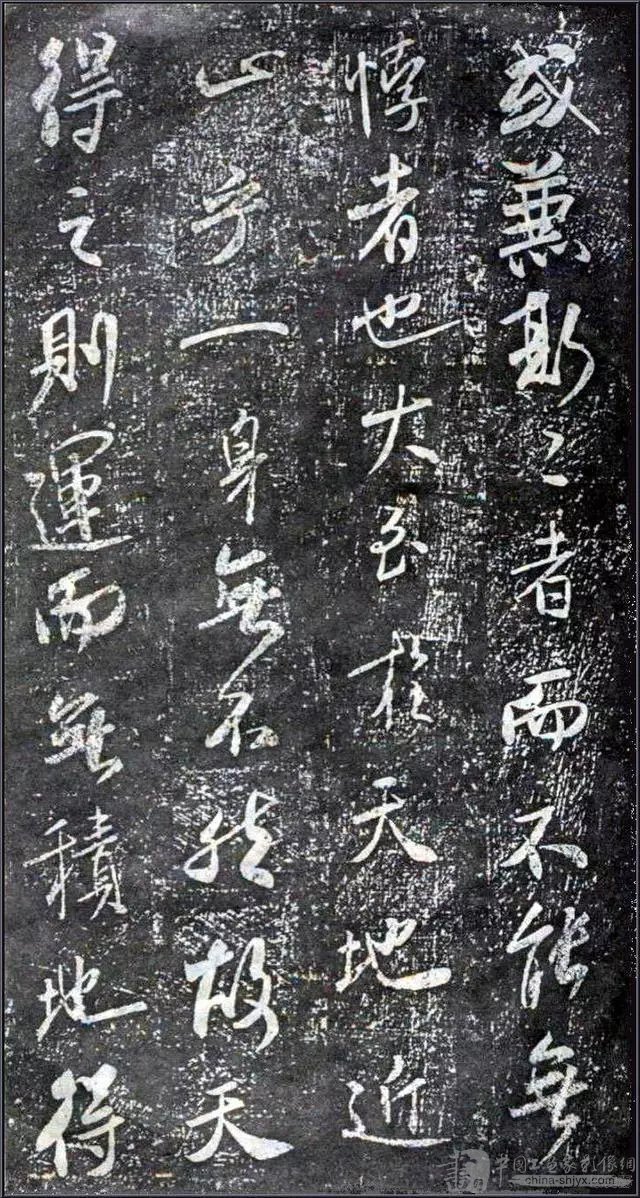 或兼斯二者而不能無
悖者也大至於天地近
止乎一身無不然故天
得之則運而無積地得
china-shjyx.com